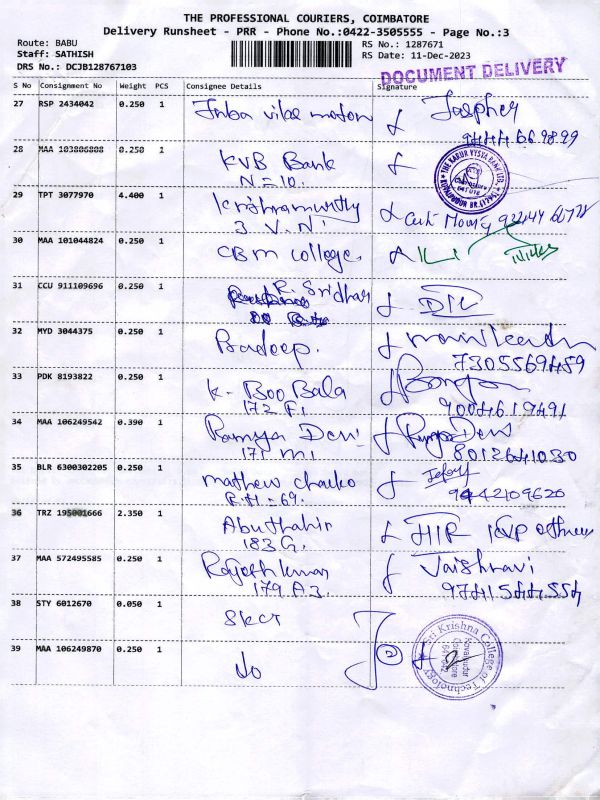 THE PROFESSIONAL COURIERS, COIMBATORE
Delivery Runsheet - PRR - Phone No.:0422-3505555 - Page No.:3
Route: BABU
RS No.: 1287671
Staff: SATHISH
RS Date: 11-Dec-2023
DRS No.: DCJB128767103
DOCUMENT DELIVERY
S No Consignment No Weight PCS Consignee Details Signature
27 RSP 2434042 0.250 1 Inba vikas motors Jaspher
9444669899
28 MAA 103806808 0.250 1 KVB Bank
N=10.
THE KARUR VYSYA BANK LTD.
29 TPT 3077970 4.400 1 Krishnamurthy
3. V. N.
30 MAA 101044824 0.250 1 CBM college.
31 CCU 911109696 0.250 1 R. Sridhar
32 MYD 3044375 0.250 1 Pradeep.
7305569459
33 PDK 8193822 0.250 1 K. Boo Bala
172 F1 9004619491
34 MAA 106249542 0.390 1 Ramya Devi Ramya Devi
171 M1 8012641030
35 BLR 6300302205 0.250 1 mathew chacko
R.H=69. 9442109620
36 TRZ 195001666 2.350 1 Abuthahir
183 G.
37 MAA 572495585 0.250 1 Rajeshkumar Vaishnavi
179 A3 9741544554
38 STY 6012670 0.050 1 SKCT
39 MAA 106249870 0.250 1 do
Sri Krishna College of Technology
Kovaipudur
Coimbatore